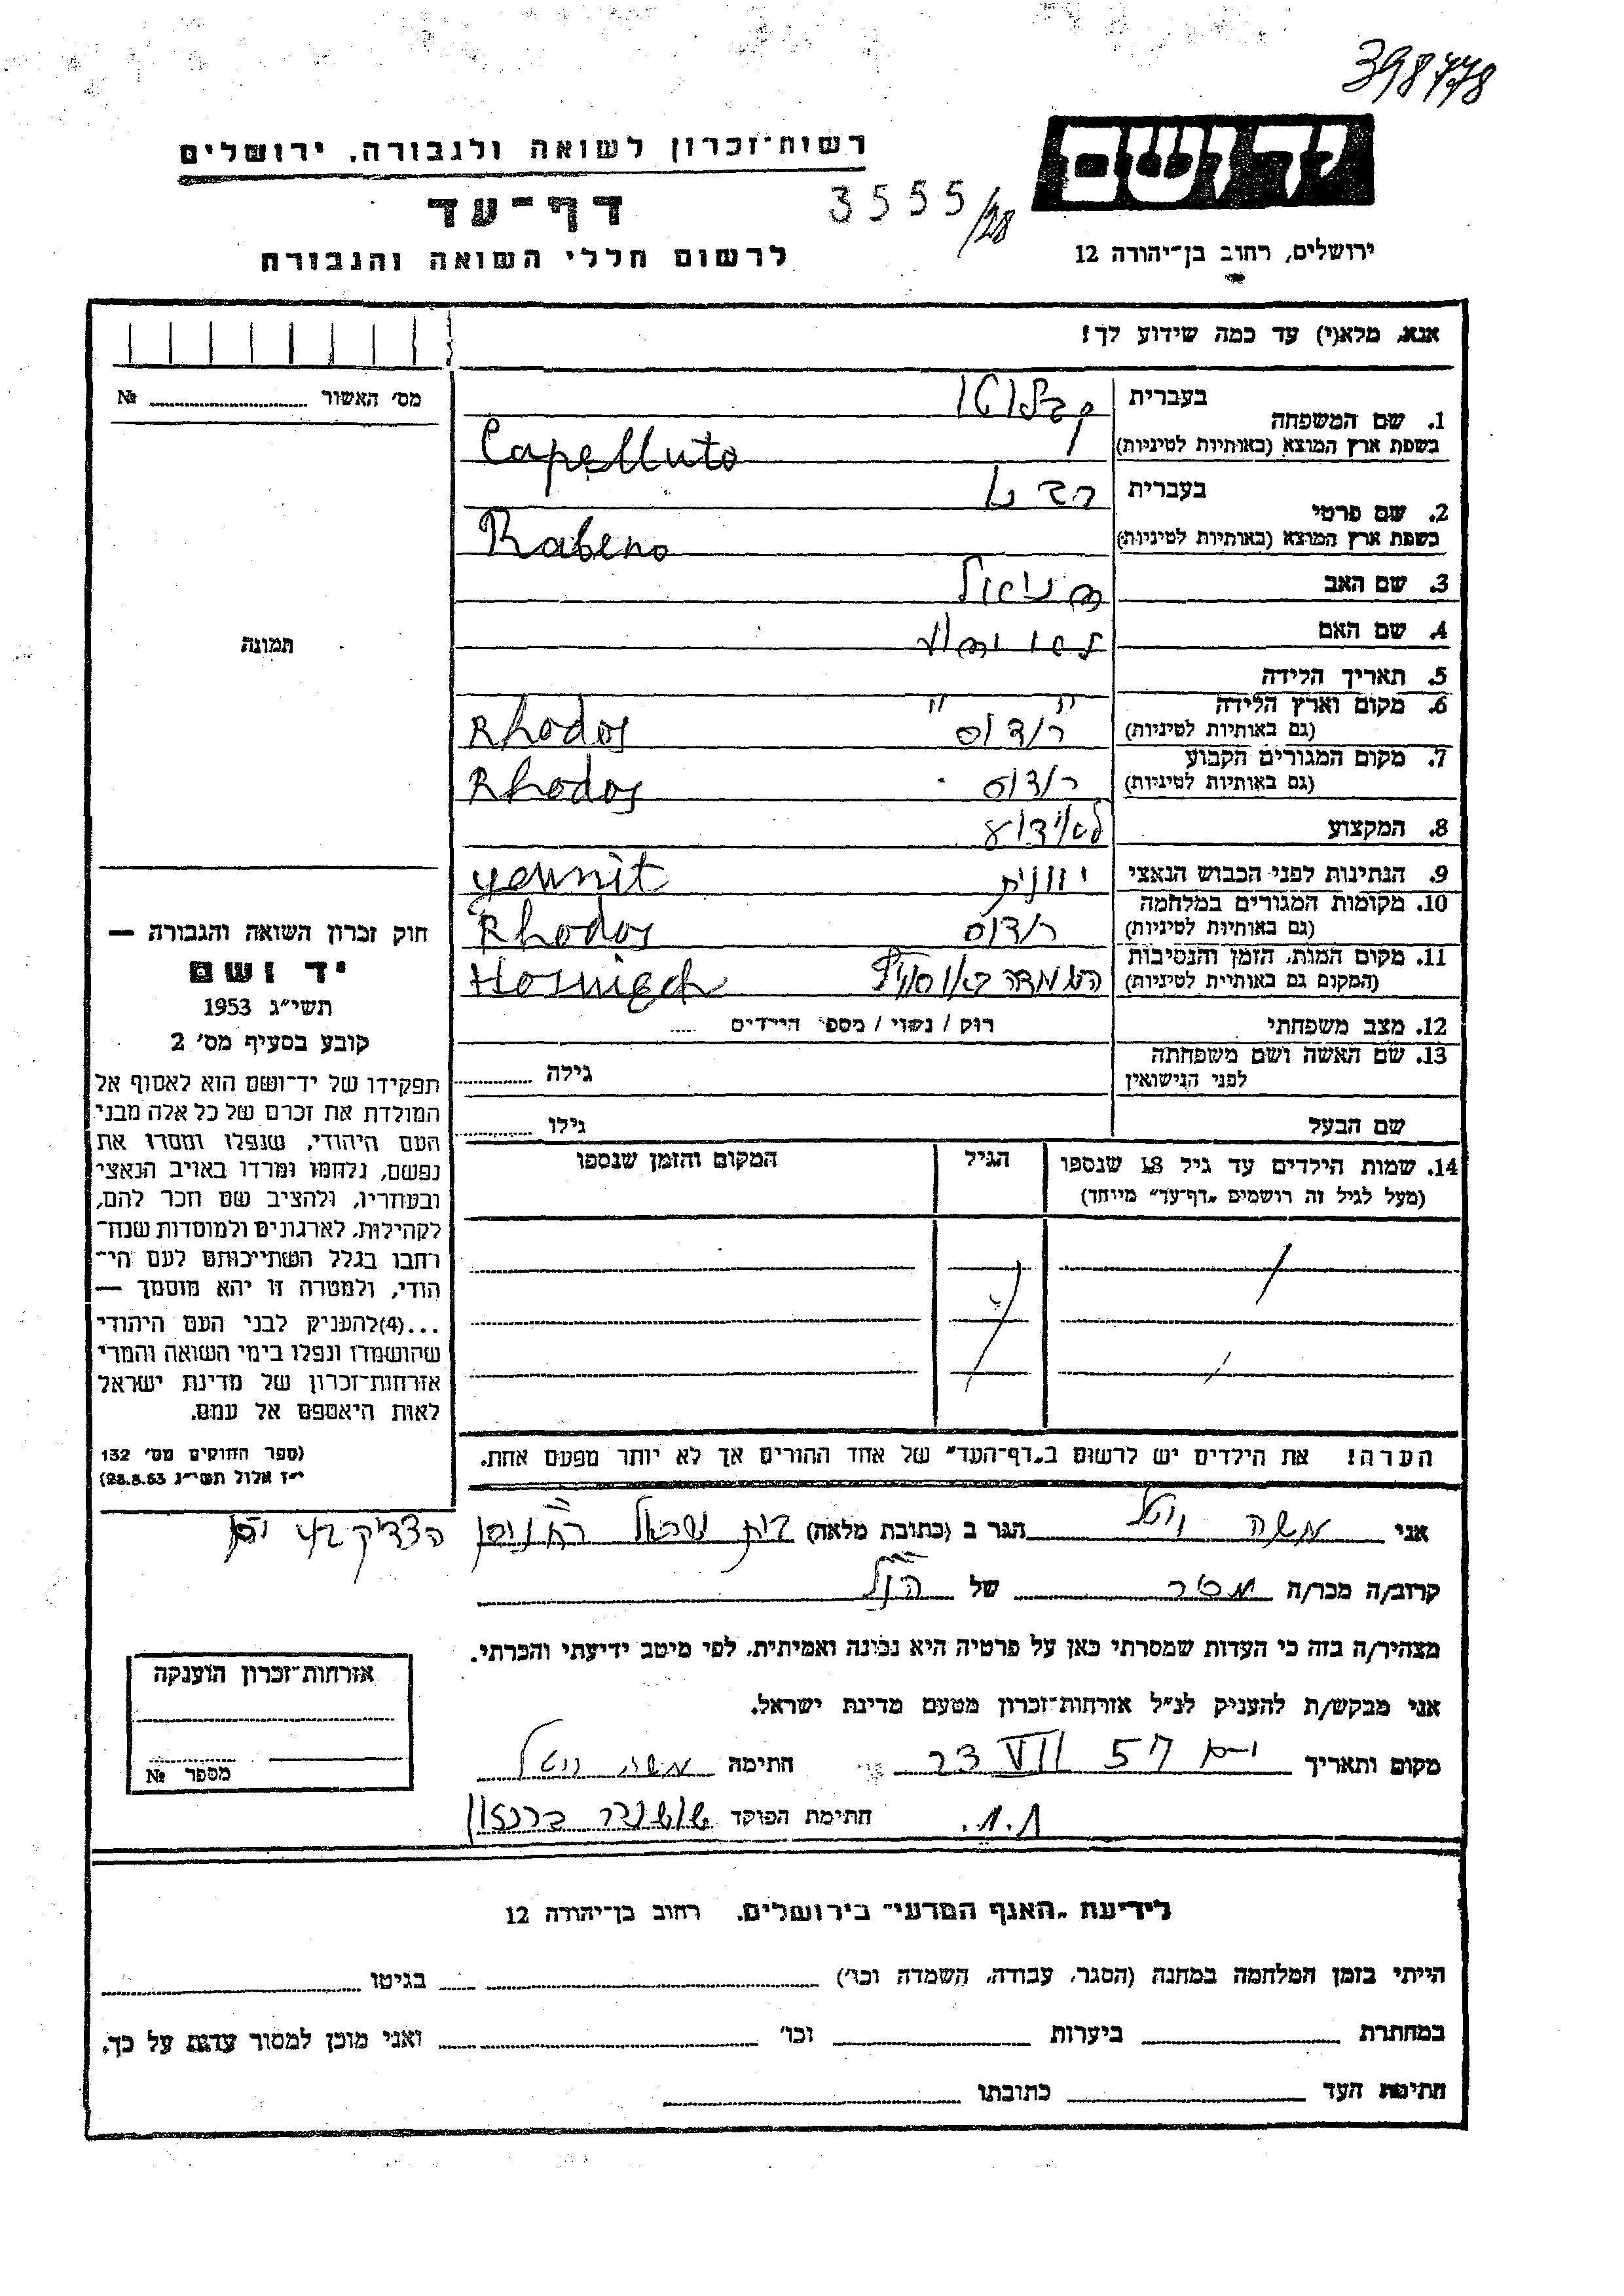 398778
יד ושם
רשות־זכרון לשואה ולגבורה, ירושלים
דף־עד
3555/28
ירושלים, רחוב בן־יהודה 12
לרשום חללי השואה והגבורה
אנא, מלא(י) עד כמה שידוע לך!
מס׳ האשור № 
תמונה
1. שם המשפחה
בעברית קפלוטו
בשפת ארץ המוצא (באותיות לטיניות) Capelluto
2. שם פרטי
בעברית רבנו
בשפת ארץ המוצא (באותיות לטיניות) Rabeno
3. שם האב
4. שם האם
5. תאריך הלידה
6. מקום וארץ הלידה
(גם באותיות לטיניות) רודוס Rhodos
7. מקום המגורים הקבוע
(גם באותיות לטיניות) רודוס Rhodos
8. המקצוע לא ידוע
9. הנתינות לפני הכבוש הנאצי יוונית yewnit
10. מקומות המגורים במלחמה
(גם באותיות לטיניות) רודוס Rhodos
11. מקום המות, הזמן והנסיבות
(המקום גם באותיית לטיניות)
12. מצב משפחתי רווק / נשוי / מספר הילדים
13. שם האשה ושם משפחתה
לפני הנישואין גילה
שם הבעל גילו
14. שמות הילדים עד גיל 18 שנספו הגיל המקום והזמן שנספו
(מעל לגיל זה רושמים „דף־עד״ מייחד)
הערה! את הילדים יש לרשום ב„דף־העד״ של אחד ההורים אך לא יותר מפעם אחת.
חוק זכרון השואה והגבורה —
יד ושם
תשי״ג 1953
קובע בסעיף מס׳ 2
תפקידו של יד־ושם הוא לאסוף אל
המולדת את זכרם של כל אלה מבני
העם היהודי, שנפלו ומסרו את
נפשם, נלחמו ומרדו באויב הנאצי
ובעוזריו, ולהציב שם וזכר להם,
לקהילות, לארגונים ולמוסדות שנח־
רבו בגלל השתייכותם לעם הי־
הודי, ולמטרה זו יהא מוסמך —
...(4)להעניק לבני העם היהודי
שהושמדו ונפלו בימי השואה והמרי
אזרחות־זכרון של מדינת ישראל
לאות היאספם אל עמם.
(ספר החוקים מס׳ 132
י״ז אלול תשי״ג 28.8.53)
אני משה הגר ב (כתובת מלאה) בית ישראל
קרוב/ה מכר/ה מכר של הנ״ל
מצהיר/ה בזה כי העדות שמסרתי כאן על פרטיה היא נכונה ואמיתית, לפי מיטב ידיעתי והכרתי.
אני מבקש/ת להעניק לנ״ל אזרחות־זכרון מטעם מדינת ישראל.
מקום ותאריך 23 VII 57 חתימה משה
חתימת הפוקד
אזרחות־זכרון הוענקה
מספר №
לידיעת „האגף המדעי״ בירושלים, רחוב בן־יהודה 12
הייתי בזמן המלחמה במחנה (הסגר, עבודה, השמדה וכו׳) בגיטו
במחתרת ביערות וכו׳ ואני מוכן למסור עדות על כך.
חתימת העד כתובתו